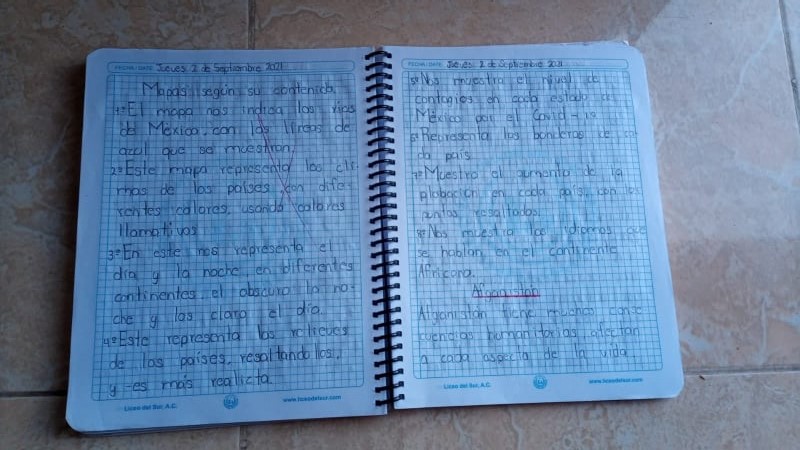 FECHA / DATE Jueves 2 de Septiembre 2021
Mapas según su contenido.
1º El mapa nos indica los ríos
de México, con las líneas de
azul que se muestran.
2º Este mapa representa los cli-
mas de los países con dife-
rentes calores, usando calores
llamativos
3º En este nos representa el
día y la noche en diferentes
continentes, el obscuro la no-
che y las claro el día.
4º Este representa los relieves
de los países, resaltandollos,
y es más realicta.
Liceo del Sur, A.C.
www.liceodelsur.com
FECHA / DATE Jueves 2 de Septiembre 2021
5º Nos muestra el nivel de
contagios en cada estado de
México por el Covid-19
6º Representa las banderas de ca-
da país.
7º Muestra el aumento de la
plobación en cada país, con los
puntos resaltados.
8º Nos muestra los idiomas que
se hablan en el continente
Africano.
Afganistán
Afganistán tiene muchas conse
cuencias humanitarias, afectan
a cada aspecto de la vida,
Liceo del Sur, A.C.
www.liceodelsur.com